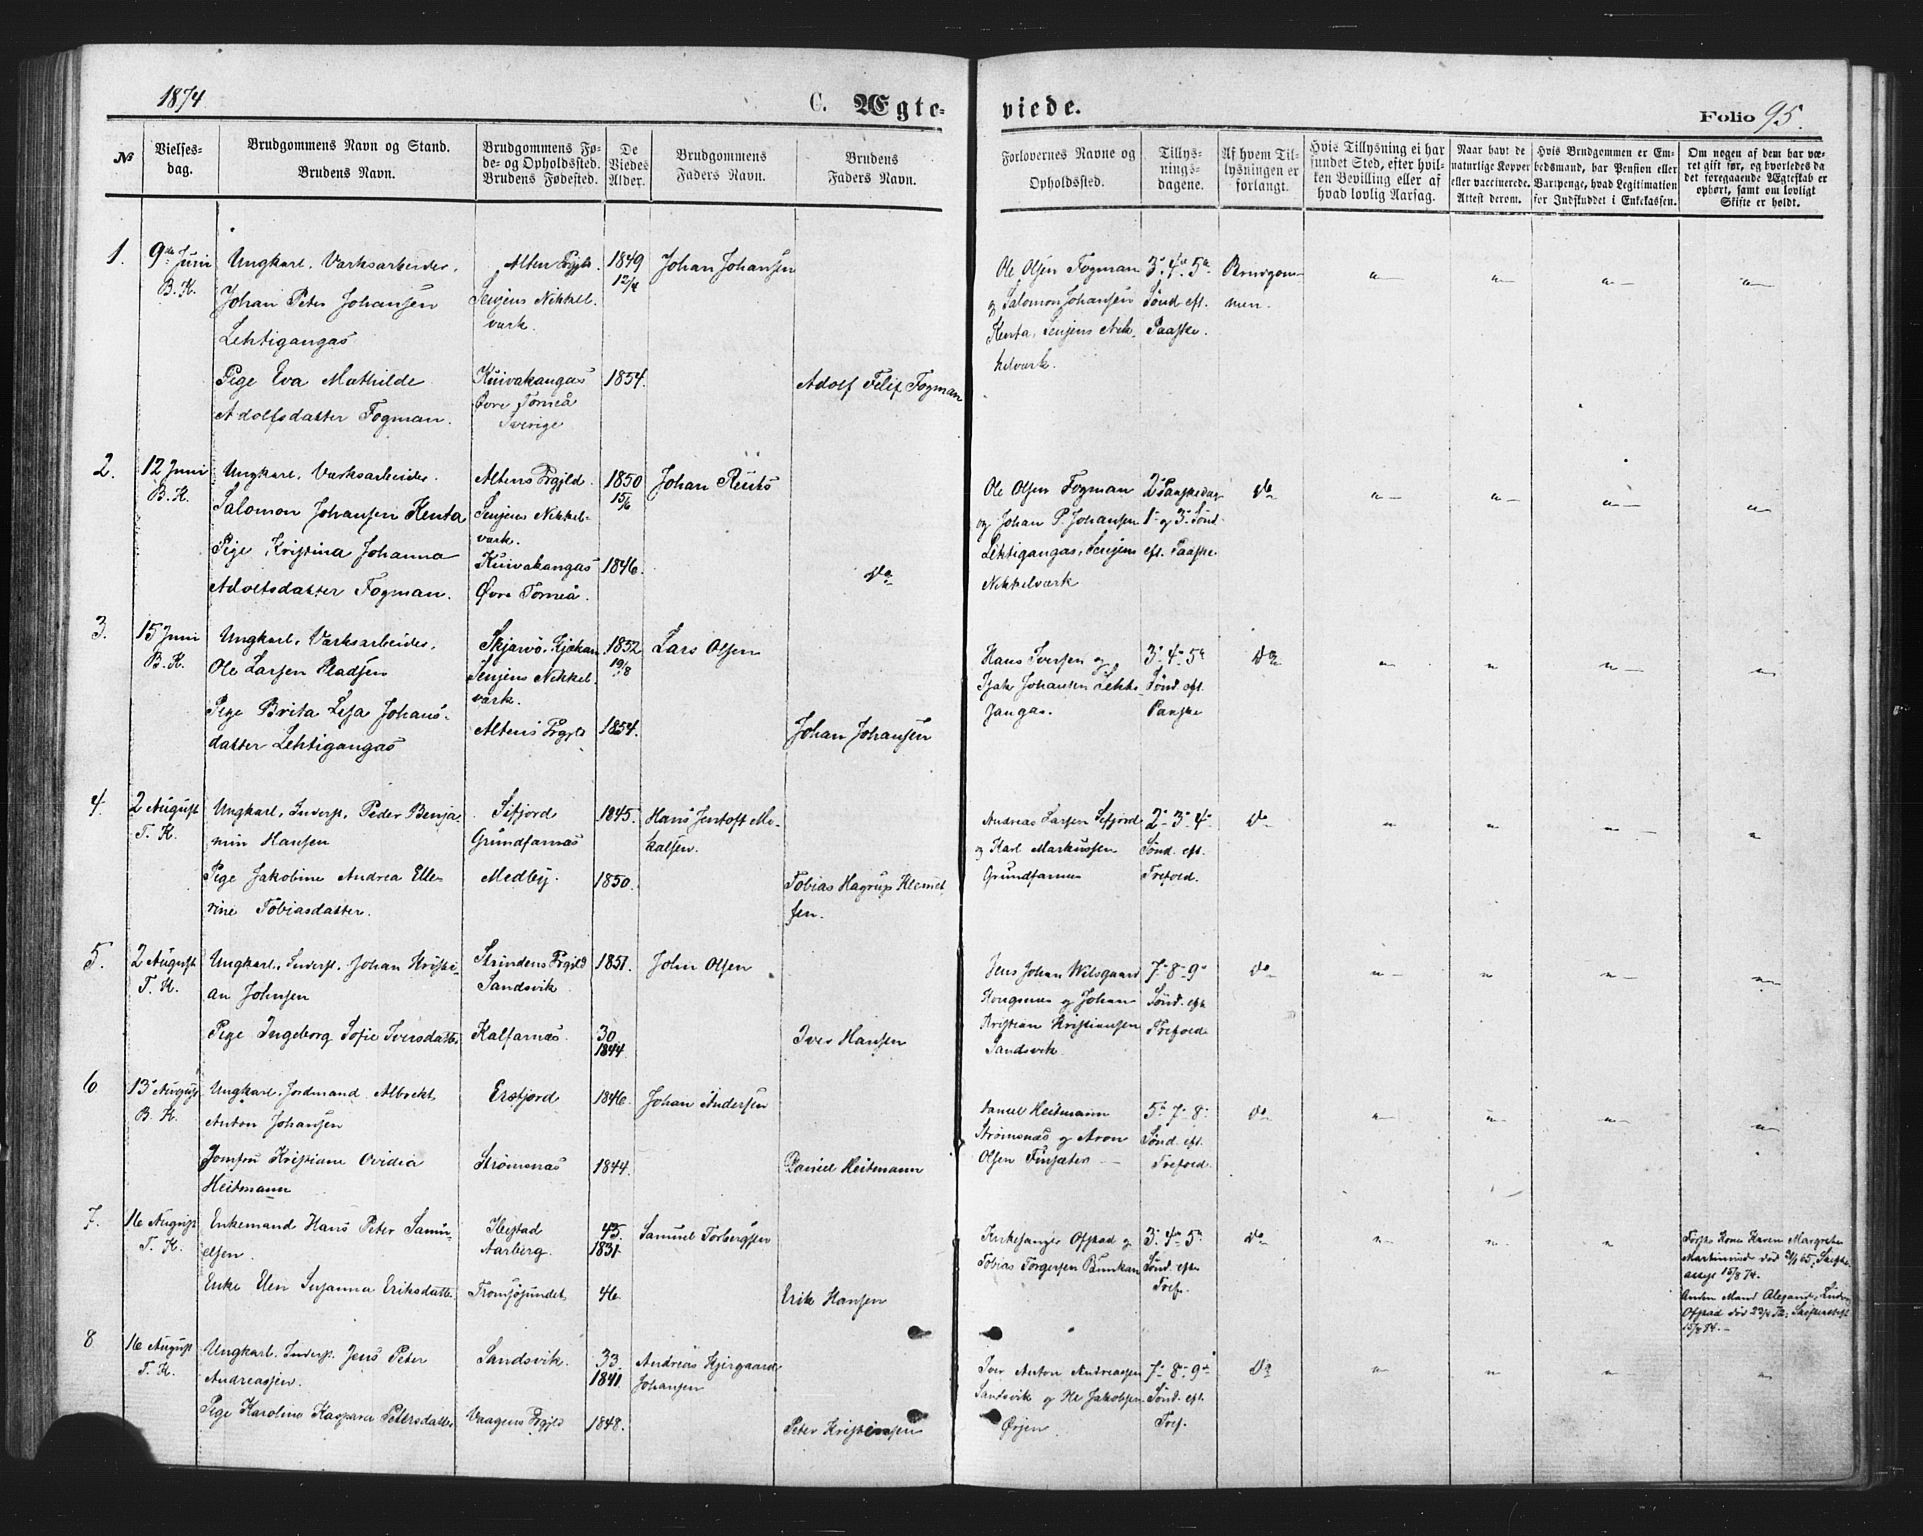 1874
C. Ægte-
viede.
Folio 95.
№
Vielses-
dag.
Brudgommens Navn og Stand.
Brudens Navn.
Brudgommens Fø-
de- og Opholdssted.
Brudens Fødested.
De
Viedes
Alder.
Brudgommens
Faders Navn.
Brudens
Faders Navn.
Forlovernes Navne og
Opholdssted.
Tillys-
nings-
dagene.
Af hvem Til-
lysningen er
forlangt.
Hvis Tillysning ei har
fundet Sted, efter hvil-
ken Bevilling eller af
hvad lovlig Aarsag.
Naar havt de
naturlige Kopper
eller vaccinerede.
Attest derom.
Hvis Brudgommen er Em-
bedsmand, har Pension eller
Vartpenge, hvad Legitimation
for Indskuddet i Enkekassen.
Om nogen af dem har væ-
ret gift før, og hvorledes da
det foregaaende Ægteskab er
ophørt, samt om lovligt
Skifte er holdt.
1.
9de Juni
B. K.
Ungkarl, Værksarbeider,
Johan Peter Johansen
Lehtigangas
Pige Eva Mathilde
Adolfsdatter Fogman.
Alten Prgjld.
Senjens Nikkel-
værk.
Kuivakangas
Øvre Torneå
Sverige
1849
12/4
1854.
Johan Johansen
Adolf Felix Fogman
Ole Olsen Fogman
og Salomon Johansen
Kenta, Senjens Nik-
kelværk.
3. 4. 5te
Sønd. eft.
Paaske.
Brudgom-
men.
2.
12 Juni
B. K.
Ungkarl, Værksarbeider.
Salomon Johansen Kenta
Pige Kristina Johanna
Adolfsdatter Fogman.
Altens Prgjld.
Senjens Nikkel-
værk.
Kuivakangas
Øvre Torneå.
1850
15/6
1846.
Johan
Do
Ole Olsen Fogman
og Johan P. Johansen
Lehtigangas, Senjens
Nikkelværk
2. Paaskedag
1. og 3. Sønd.
eft. Paaske
Do
3.
15 Juni
B. K.
Ungkarl, Værksarbeider,
Ole Larsen Pladsen
Pige Brita Lisa Johans-
datter Lehtigangas
Skjærvö,
Senjens Nikkel-
værk.
Altens Prgjld
1852
19/8
1854.
Lars Olsen
Johan Johansen
Hans Iversen og
Isak Johansen Lehti-
gangas.
3. 4. 5te
Sønd. eft.
Paaske
Do
4.
2 August
T. K.
Ungkarl, Inderst, Peder Benja-
min Hansen
Pige Jakobine Andrea Elle-
rine Tobiasdatter.
Sifjord
Grundfarnæs
Medby.
1845.
1850.
Hans Jentoft Mi-
kalsen.
Tobias Hagrup Klemet-
sen.
Andreas Larsen Sifjord
og Karl Markussen
Grundfarnæs
2. 3. 4.
Sønd. eft.
Trefold.
Do
5.
2 August
T. K.
Ungkarl, Inderst, Johan Kristi-
an Johnsen
Pige Ingeborg Sofie Iversdatter
Strindens Prgjld
Sandsvik
Kalfarnæs.
1851.
30
1844.
John Olsen
Iver Hansen
Jens Johan Wilsgaard
Kongsnæs og Johan
Kristian Kristiansen
Sandsvik.
7. 8. 9.
Sønd. eft.
Trefold
Do
6
13 August
B. K.
Ungkarl, Jordmand Albrekt
Anton Johansen
Jomfru Kristiane Ovidia
Heitmann
Ersfjord
Strømsnæs
1846.
1844.
Johan Andersen
Daniel Heitmann
Daniel Heitmann
Strømsnæs og Aron
Olsen Finsæter
5. 7. 8.
Sønd. eft.
Trefold.
Do
7.
16 August
T. K.
Enkemand Hans Peter Samu-
elsen.
Enke Elen Susanna Eriksdatter
Ibestad
Aarberg.
Tromsøsundet
43.
1831.
46.
Samuel Torbergsen
Erik Hansen
Kirkesanger Ofstad og
Tobias Torgersen Bunkan
3. 4. 5te
Sønd. efter
Tref.
Do
Første Kone Karen Margrethe
15/8 74.
15/8 74.
8
16 August
T. K.
Ungkarl. Inderst. Jens Peter
Andreassen.
Pige Karoline Kaspara Petersdatter
Sandsvik.
Vaagens Prgjld
33.
1841.
1848.
Andreas Kjergaard
Johansen
Peter Kristensen
Iver Anton Andreassen
Sandsvik og Ole Jakobsen
Ørjen
7. 8. 9de
Sønd. eft.
Tref.
Do